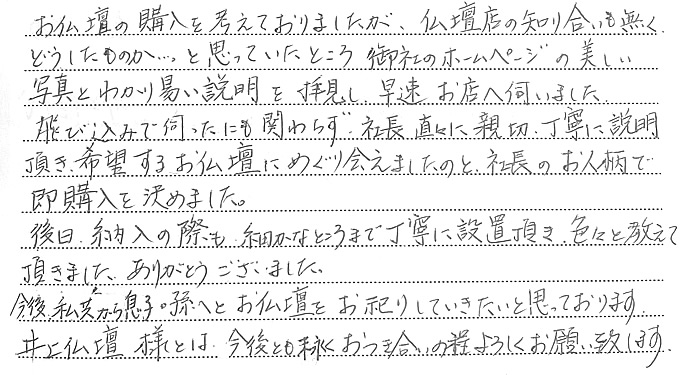 お仏壇の購入を考えておりましたが、仏壇店の知り合いも無く
どうしたものか…、と思っていたところ 御社のホームページの美しい
写真とわかり易い説明を拝見し、早速お店へ伺いました。
飛び込みで伺ったにも関わらず、社長直々に親切、丁寧に説明
頂き、希望するお仏壇にめぐり会えましたのと、社長のお人柄で
即購入を決めました。
後日、納入の際も、細かなところまで丁寧に設置頂き、色々と教えて
頂きました。ありがとうございました。
今後、私共から息子・孫へとお仏壇をお祀りしていきたいと思っております。
井上仏壇様とは、今後とも末永くおつき合いの程よろしくお願い致します。